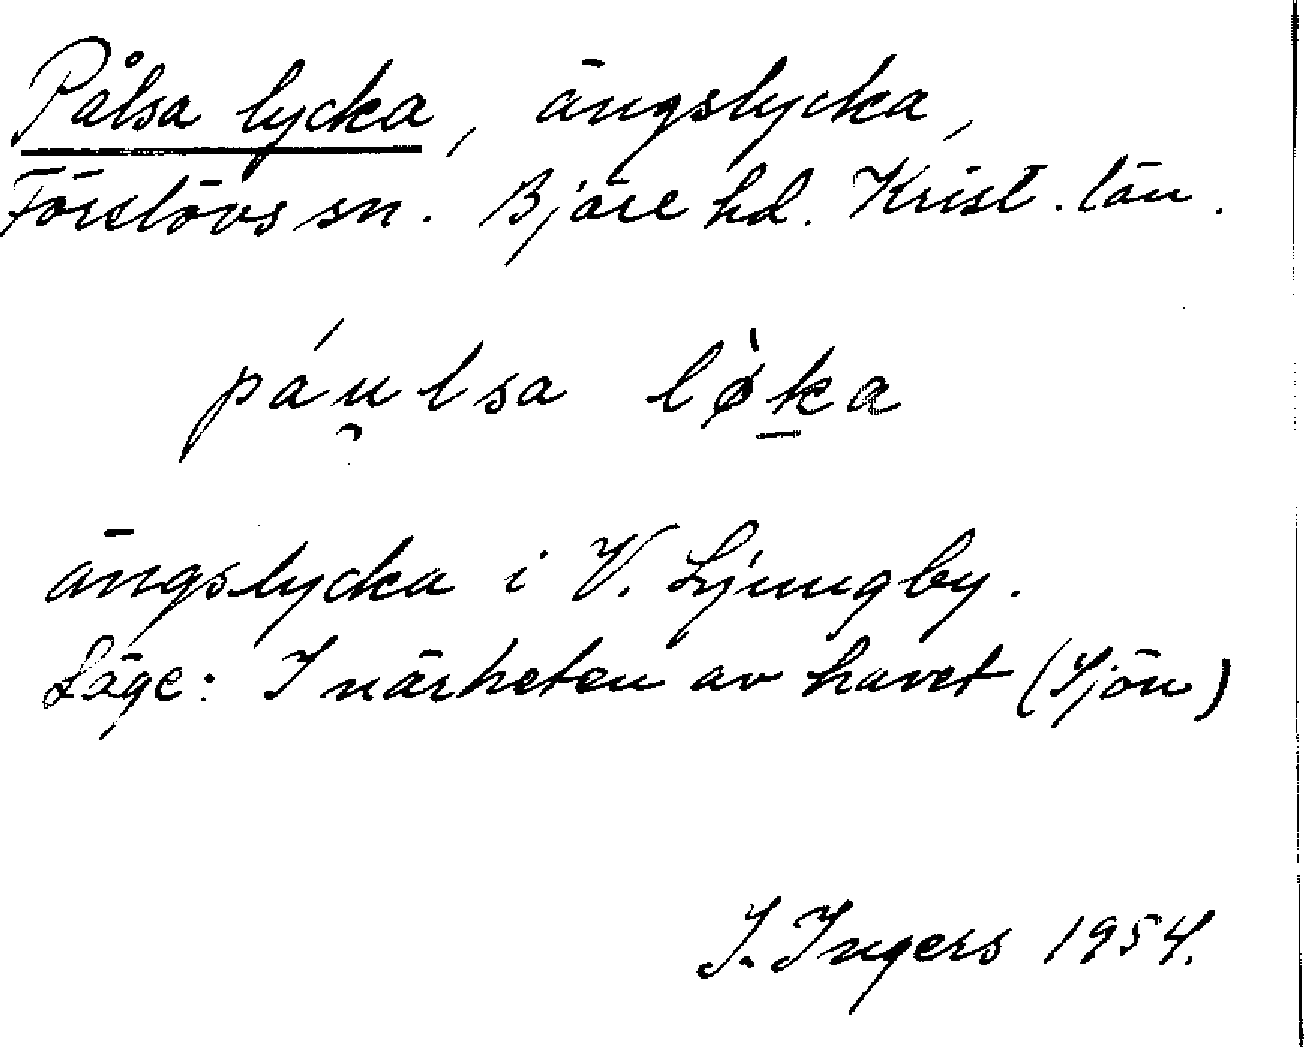 Pålsa lycka, ängslycka,
Förslövs sn. Bjäre hd. Krist. län.
páu̯lsa lø̀ḵa
ängslycka i V. Ljungby.
Läge: I närheten av havet (Sjön)
I. Ingers 1954.